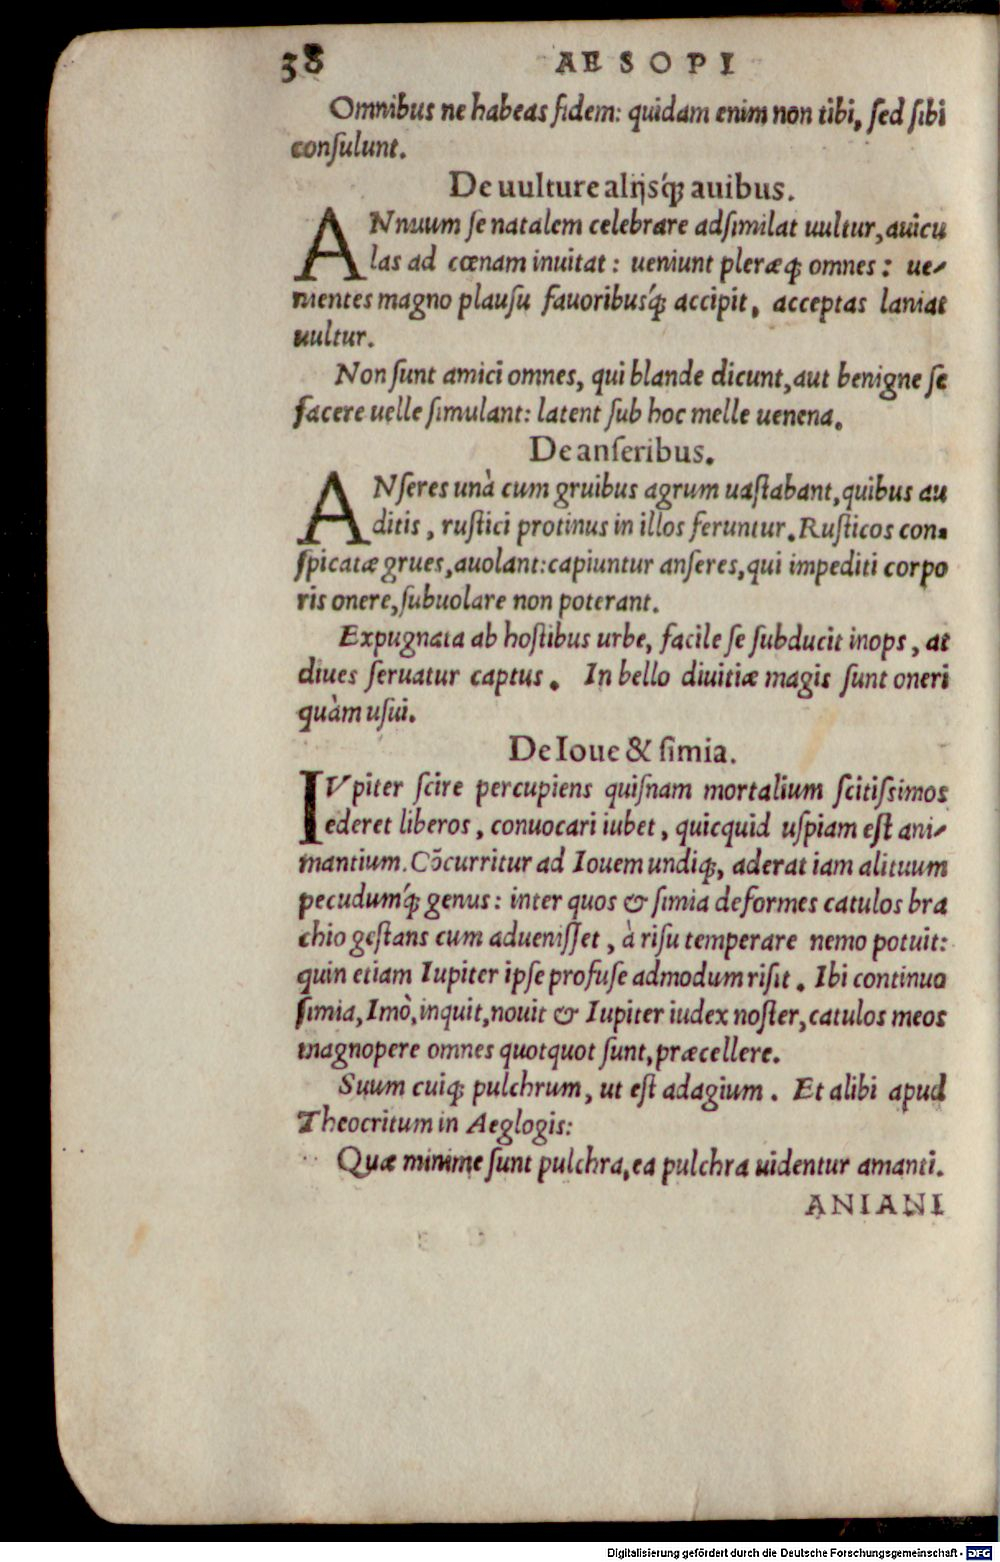 38 AESOPI
Omnibus ne habeas fidem: quidam enim non tibi, ſed ſibi
conſulunt.
De uulture alijsq́ꝫ auibus.
ANnuum ſe natalem celebrare adſimilat uultur, auicu
las ad cœnam inuitat: ueniunt pleræqꝫ omnes: ue⸗
nientes magno plauſu fauoribusq́ꝫ accipit, acceptas laniat
uultur.
Non ſunt amici omnes, qui blande dicunt, aut benigne ſe
facere uelle ſimulant: latent ſub hoc melle uenena.
De anſeribus.
ANſeres unà cum gruibus agrum uaſtabant, quibus au
ditis, ruſtici protinus in illos feruntur. Ruſticos con⸗
ſpicatæ grues, auolant: capiuntur anſeres, qui impediti corpo
ris onere, ſubuolare non poterant.
Expugnata ab hoſtibus urbe, facile ſe ſubducit inops, at
diues ſeruatur captus. In bello diuitiæ magis ſunt oneri
quàm uſui.
De Ioue & ſimia.
IVpiter ſcire percupiens quiſnam mortalium ſcitiſsimos
ederet liberos, conuocari iubet, quicquid uſpiam eſt ani⸗
mantium. Cõcurritur ad Iouem undiqꝫ, aderat iam alituum
pecudumq́ꝫ genus: inter quos & ſimia deformes catulos bra
chio geſtans cum adueniſſet, à riſu temperare nemo potuit:
quin etiam Iupiter ipſe profuſe admodum riſit. Ibi continuo
ſimia, Imò, inquit, nouit & Iupiter iudex noſter, catulos meos
magnopere omnes quotquot ſunt, præcellere.
Suum cuiqꝫ pulchrum, ut eſt adagium. Et alibi apud
Theocritum in Aeglogis:
Quæ minime ſunt pulchra, ea pulchra uidentur amanti.
ANIANI
Digitalisierung gefördert durch die Deutsche Forschungsgemeinschaft - DFG